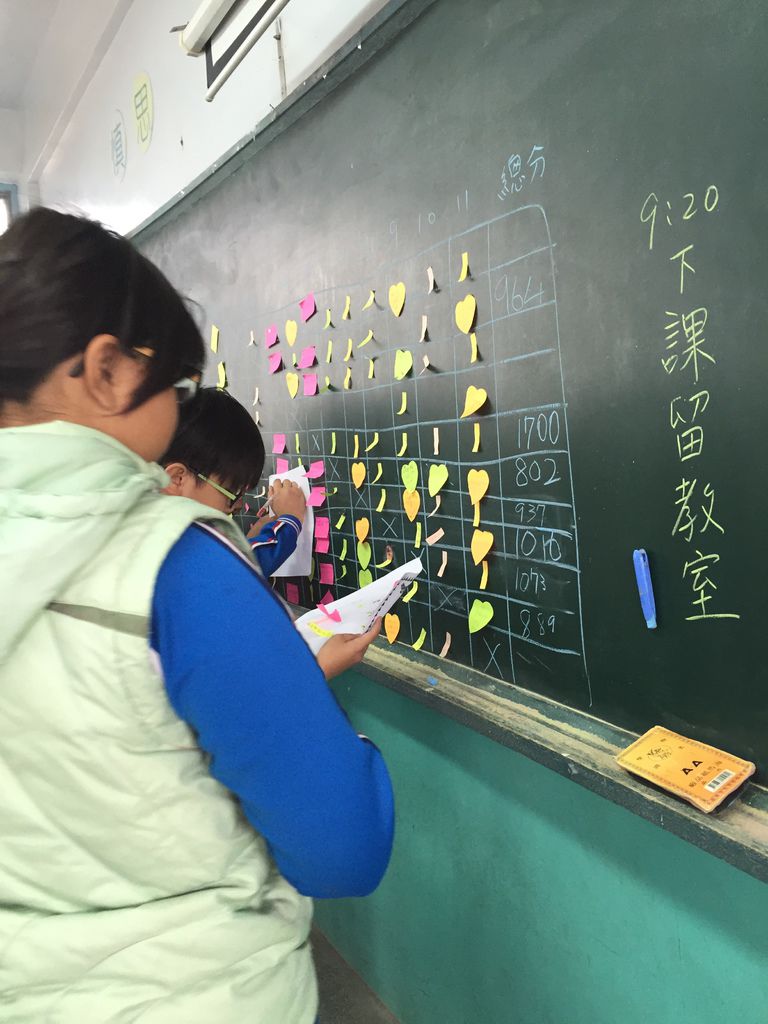 思
9 10 11
總分
964
1700
802
937
1010
1073
889
X
X
X
X
X
9:20
下課留教室
AA